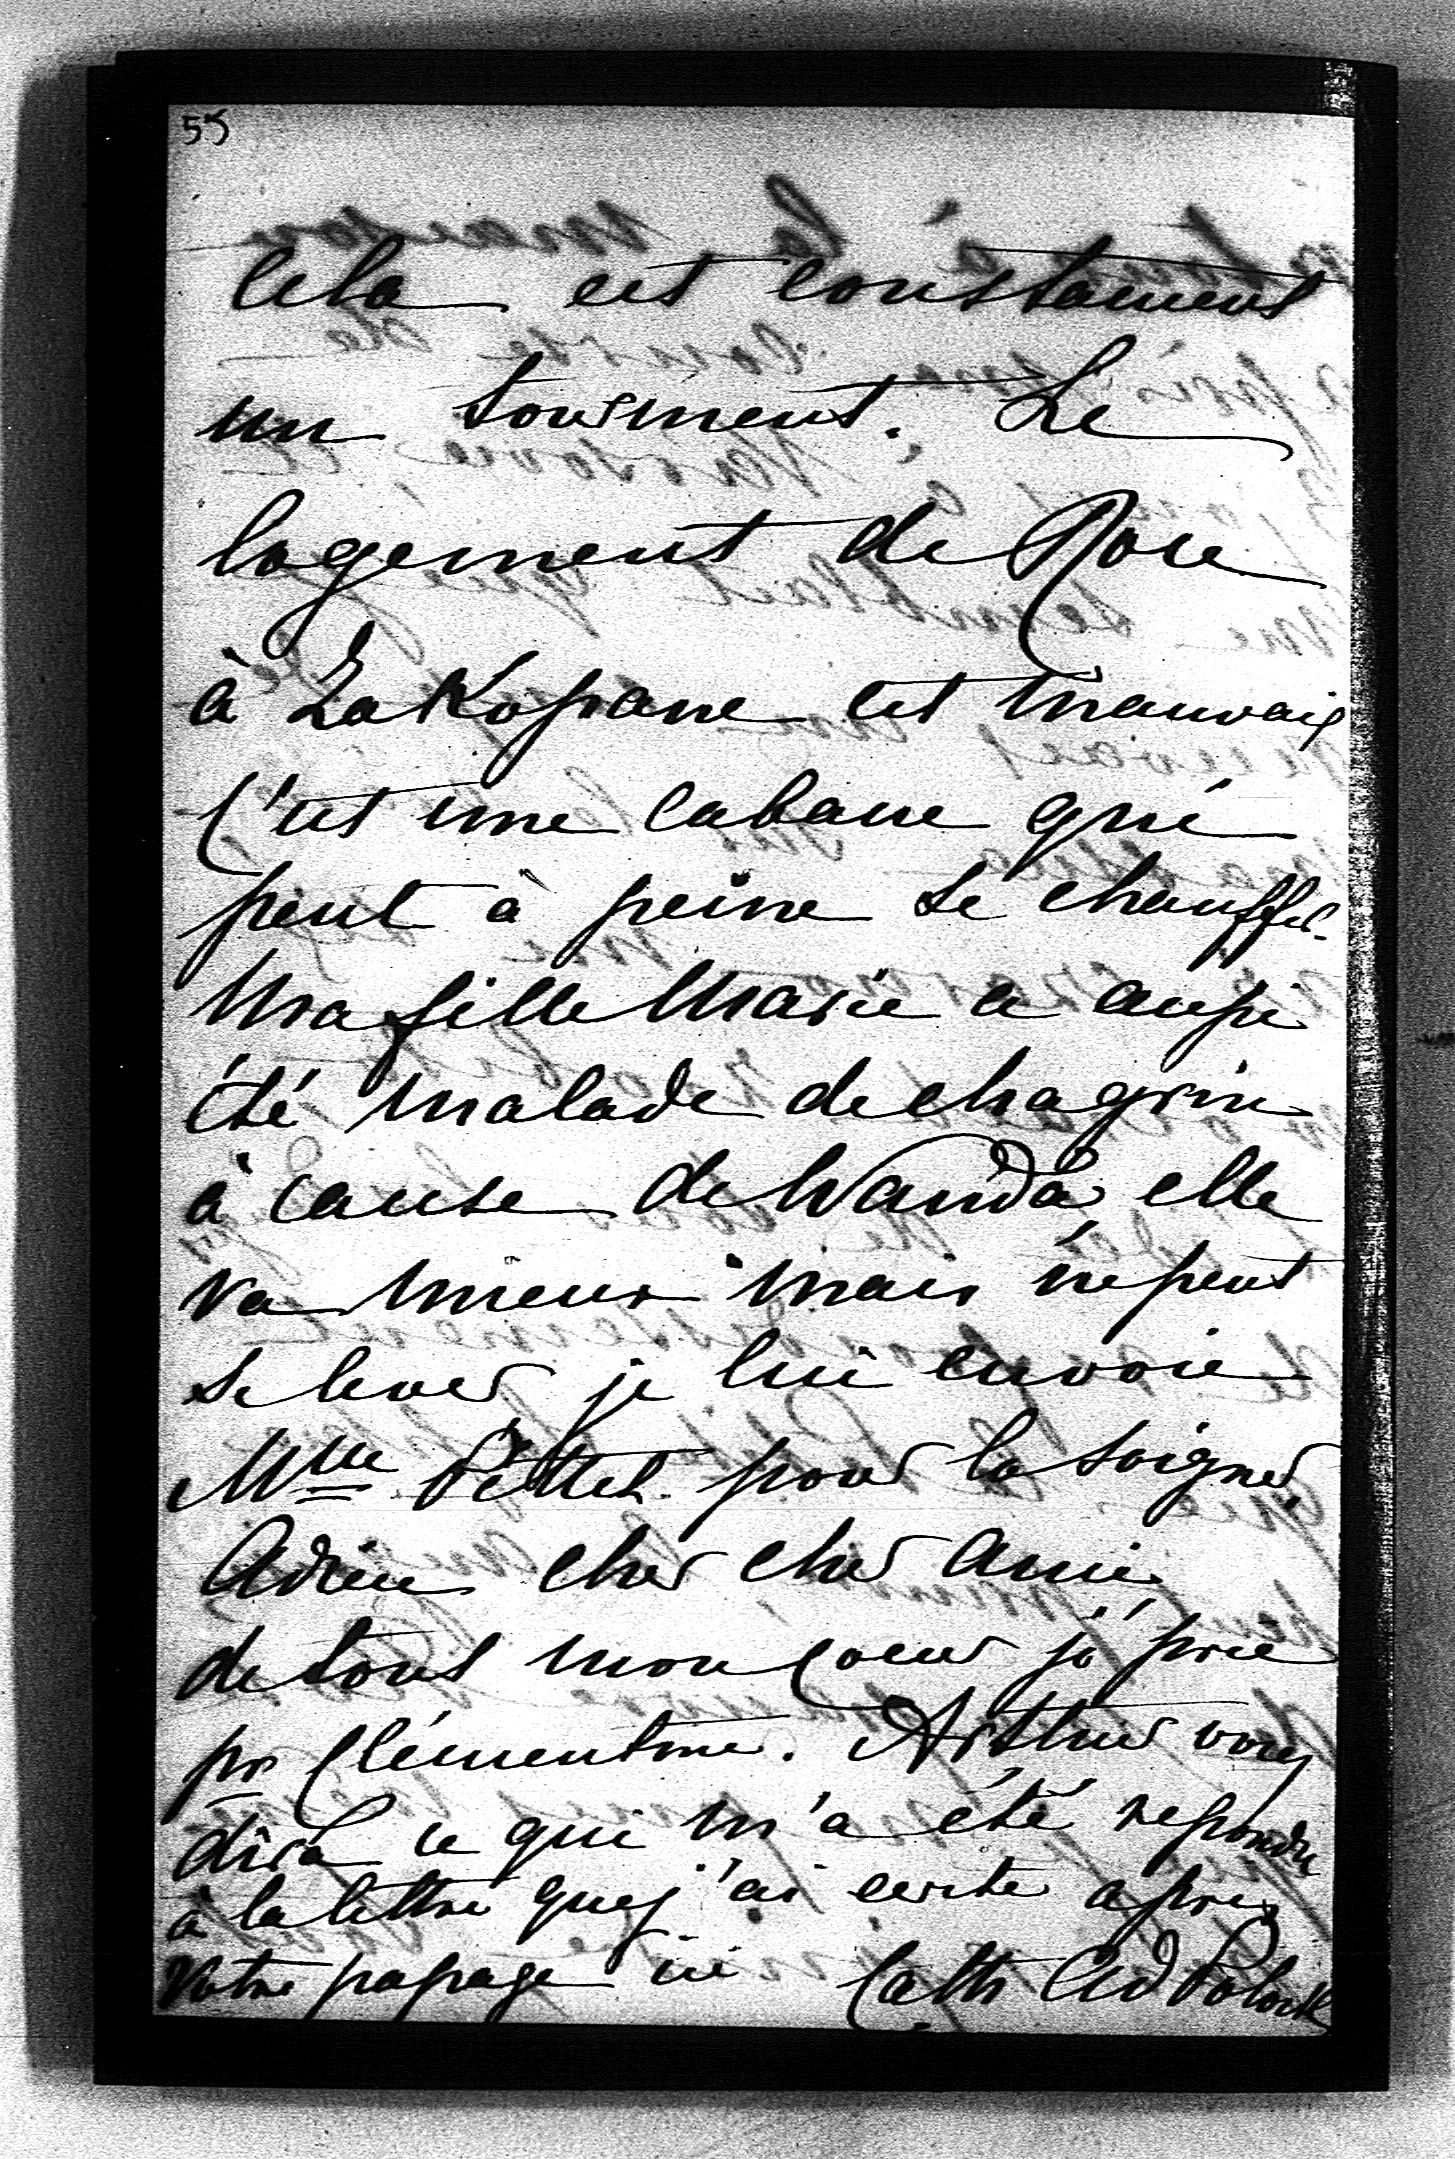 55
Cela est constament
un tourment. Le
logement de Rose
à Zakopane est mauvais
C'est une cabane qui
peut à peine se chauffer.
Ma fille Marie a aussi
été malade de chagrin
à cause de Wanda elle
va mieux mais ne peut
se lever je lui envoie
Mme Pettet pour la soigner
Adieu cher cher Ami
de tout mon Coeur je prie
pr Clémentine. Arthur vous
dira ce qui m'a été repondu
à la lettre que j'ai ecrite apres
Votre passage ici Cath Ad Potock